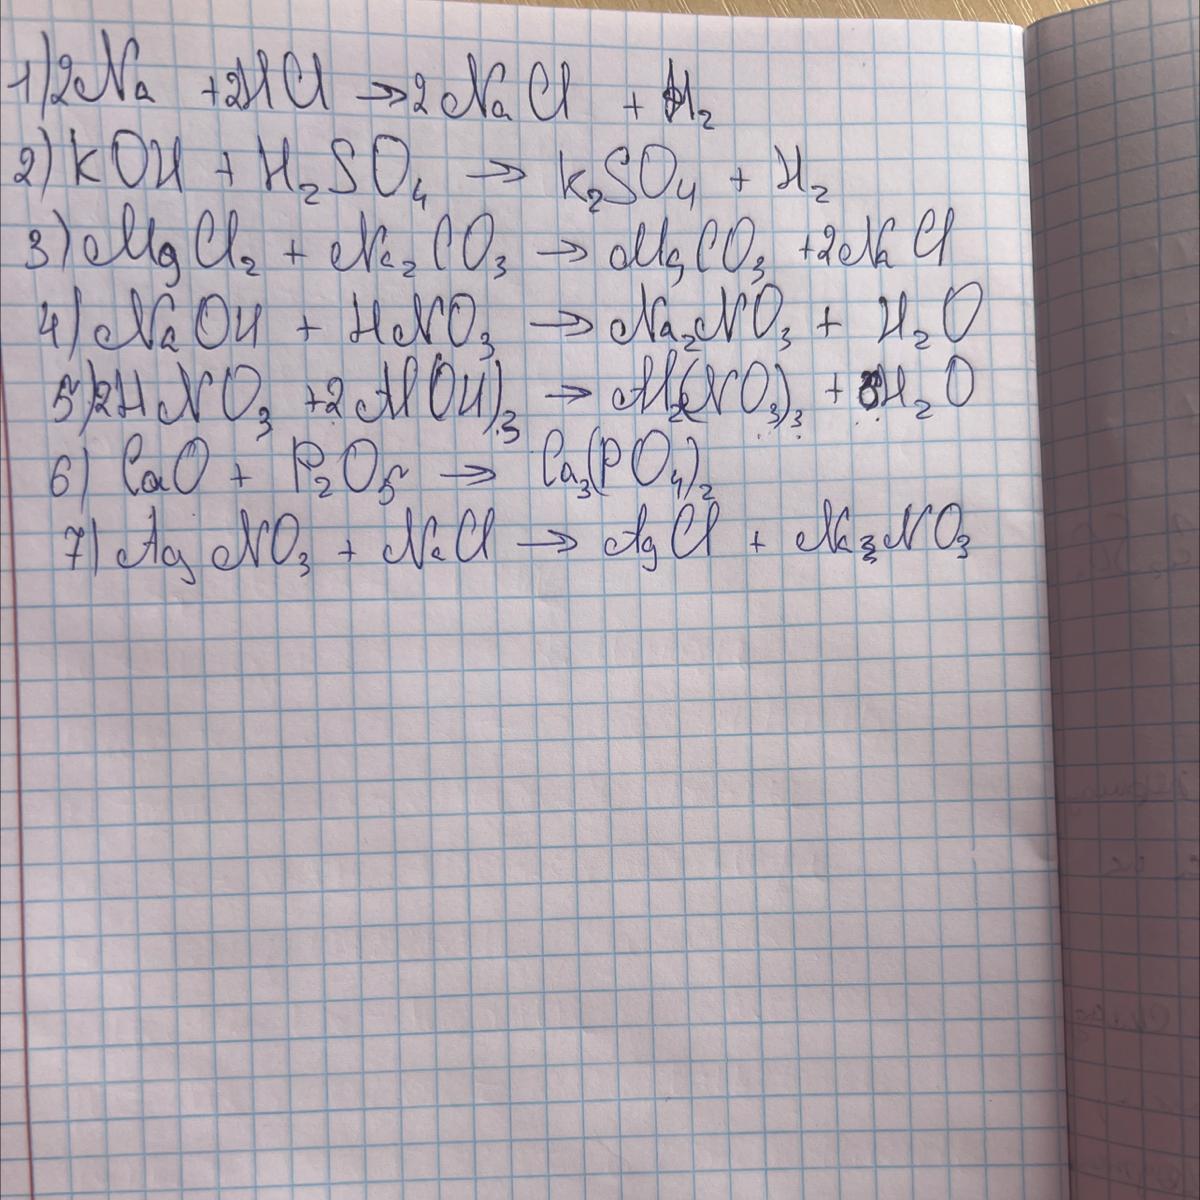 1) 2Na + 2HCl → 2NaCl + H₂
2) KOH + H₂SO₄ → K₂SO₄ + H₂
3) MgCl₂ + Na₂CO₃ → MgCO₃ + 2NaCl
4) NaOH + HNO₃ → Na₂NO₃ + H₂O
5) 2HNO₃ + 2Al(OH)₃ → Al₂(NO₃)₃ + 6H₂O
6) CaO + P₂O₅ → Ca₃(PO₄)₂
7) AgNO₃ + NaCl → AgCl + Na₃NO₃